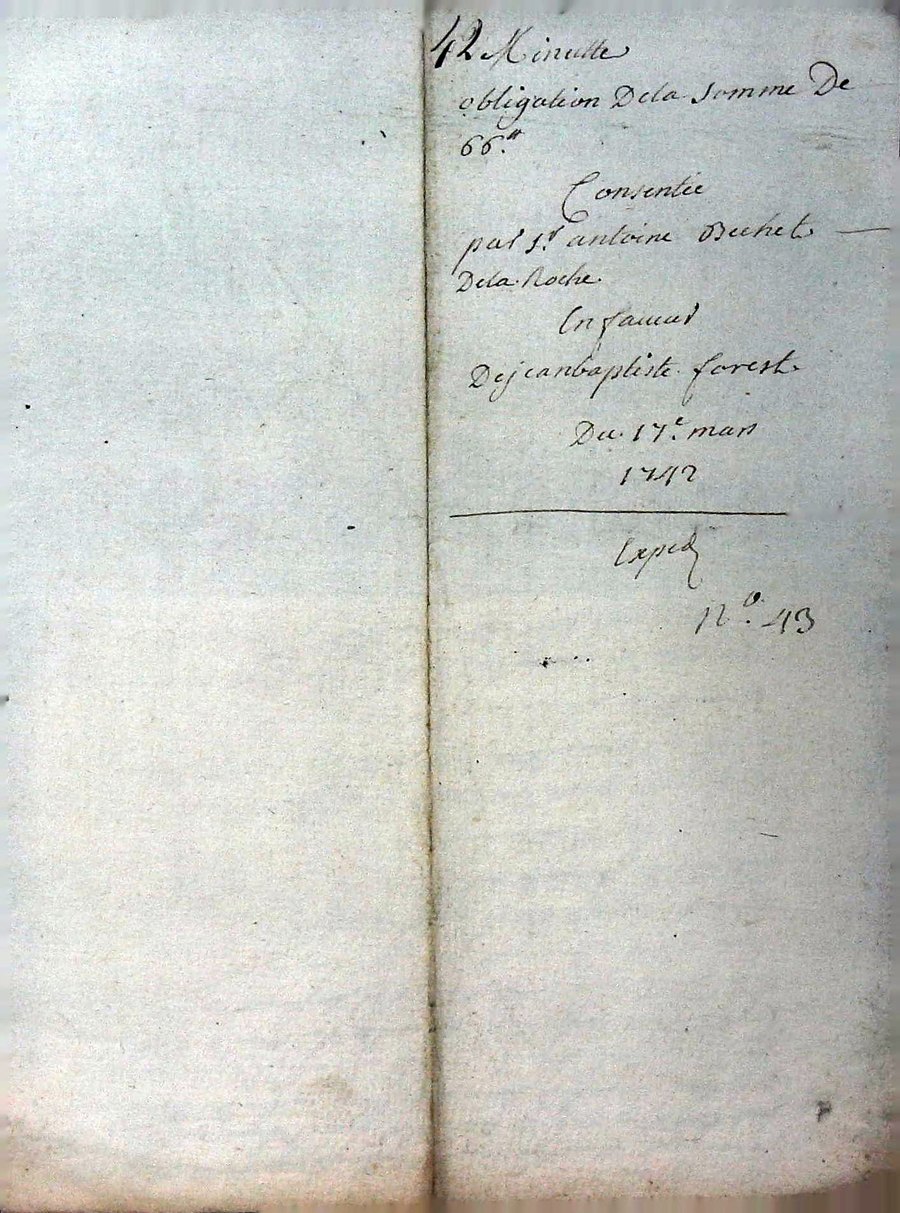 42 Minutte
obligation Dela somme De
66.tt
Consentie
par sr. antoine Bechet
Dela Roche.
En faveur
Dejeanbaptiste forest.
Du 17e. mars
1742
Exped
No. 43